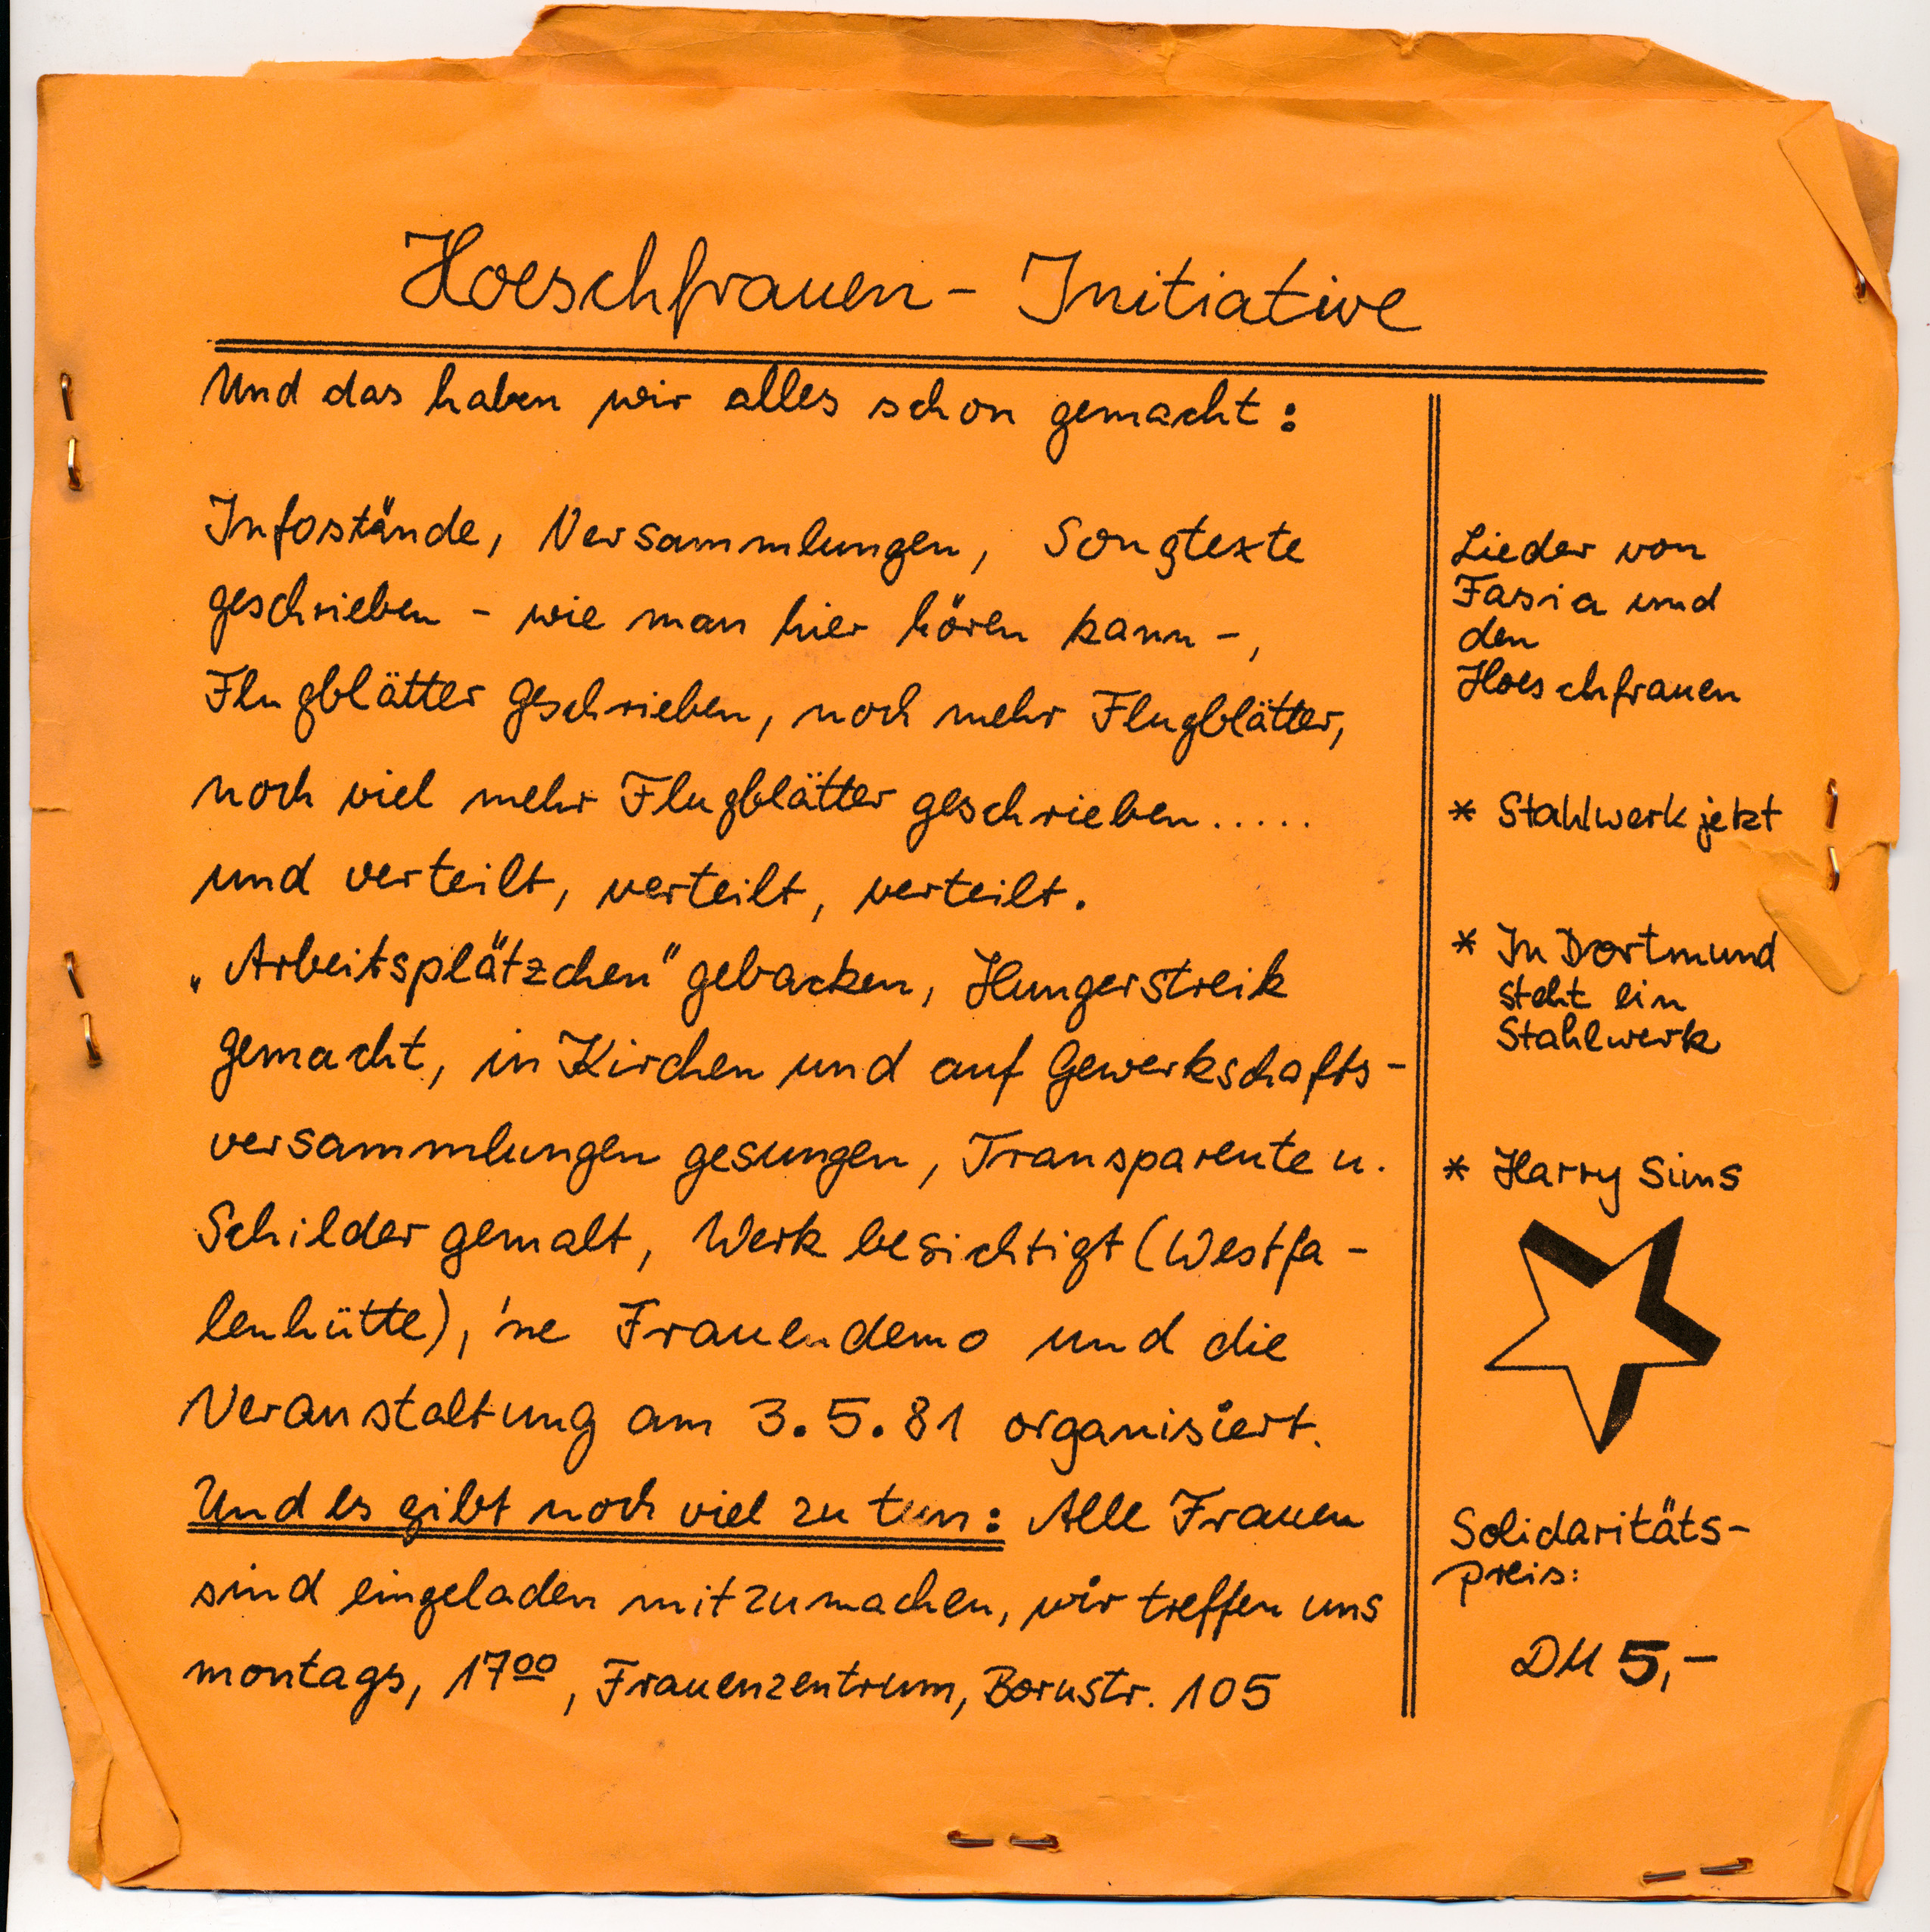 Hoeschfrauen - Initiative
Und das haben wir alles schon gemacht:
Infostände, Versammlungen, Songtexte
geschrieben - wie man hier hören kann -,
Flugblätter geschrieben, noch mehr Flugblätter,
noch viel mehr Flugblätter geschrieben.....
und verteilt, verteilt, verteilt.
„Arbeitsplätzchen" gebacken, Hungerstreik
gemacht, in Kirchen und auf Gewerkschafts-
versammlungen gesungen, Transparente u.
Schilder gemalt, Werk besichtigt (Westfa-
lenhütte), 'ne Frauendemo und die
Veranstaltung am 3.5.81 organisiert.
Und es gibt noch viel zu tun: Alle Frauen
sind eingeladen mitzumachen, wir treffen uns
montags, 17⁰⁰, Frauenzentrum, Bornstr. 105
Lieder von
Fasia und
den
Hoeschfrauen
* Stahlwerk jetzt
* In Dortmund
steht ein
Stahlwerk
* Harry Sims
Solidaritäts-
preis:
DM 5,-